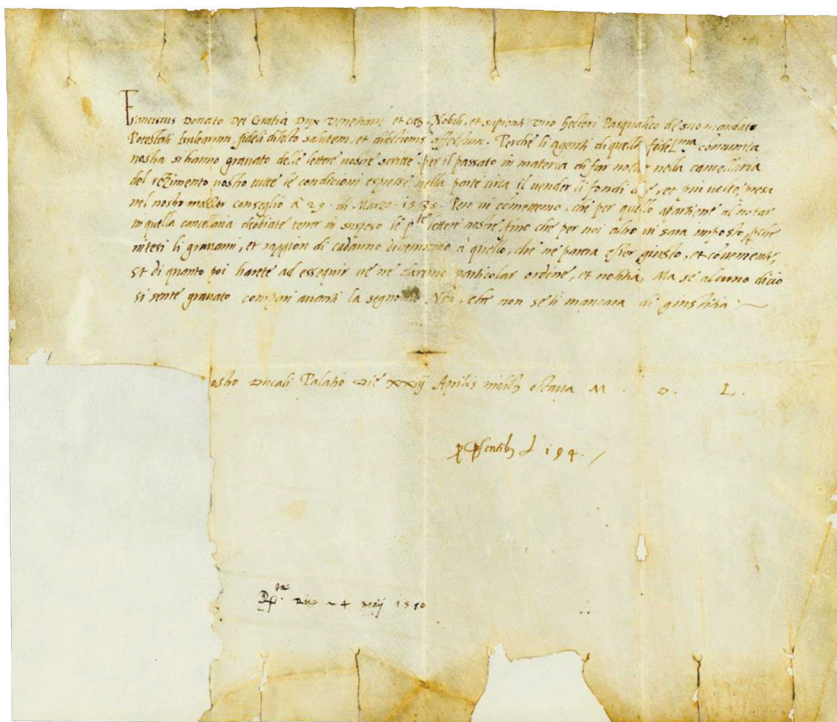 Franciscus Donato Dei Gratia Dux Venetiarum et cæt. Nobili, et sapienti viro Hectori Pasqualico de suo mandato
Potestati fideli dilecto salutem, et dilectionis affectum. Perche li agenti di quella fedel.ma communita
nostra si hanno gravato delle lettere nostre scritte per il passato in materia di far notar nella cancellaria
del reggimento vostro tutte le condizioni espresse nella parte circa il vender li fondi presa
nel nostro maggior conseglio à 29. di Marzo. Pero vi comettemo, che per quello al notar
in quella cancellaria debiate tener in suspeso le p.te lettere nostre, fino che per noi altro vi sara imposto, perche
intesi li gravami, et raggion di cadauno à quello, che ne parera esser giusto, et conveniente,
Et di quanto poi harete ad essequir ve ne daremo particolar ordine, et notitia, Ma se alcuno
si sente gravato compari avanti la Nra, che non se li mancara di giustitia
ostro Ducali Palatio Die XXIJ Aprilis octava M. D. L.
194.
die 4 maij 1550